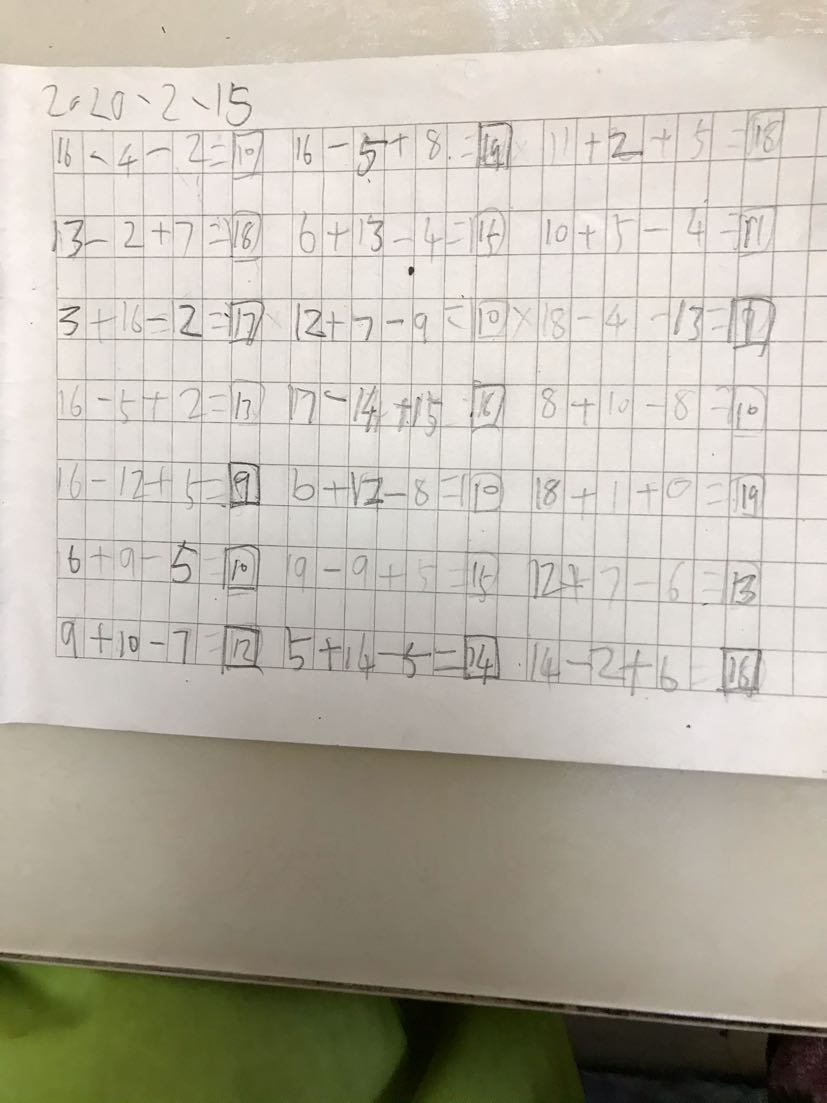 2020、2、15
16-4-2=10 16-5+8=19 11+2+5=18
13-2+7=18 6+13-4=15 10+5-4=11
3+16-2=17 12+7-9=10 18-4-13=1
16-5+2=13 17-14+15= 8+10-8=10
16-12+5=9 6+12-8=10 18+1+0=19
6+9-5=10 19-9+5=15 12+7-6=13
9+10-7=12 5+14-5=14 14-2+6=